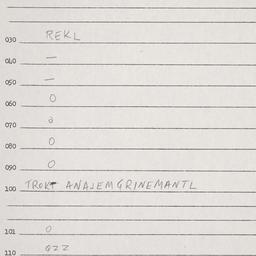 030 REKL
040 —
050 —
060 0
070 0
080 0
090 0
100 TROKT ANALEMGRINEMANTL
101 0
110 0ZZ